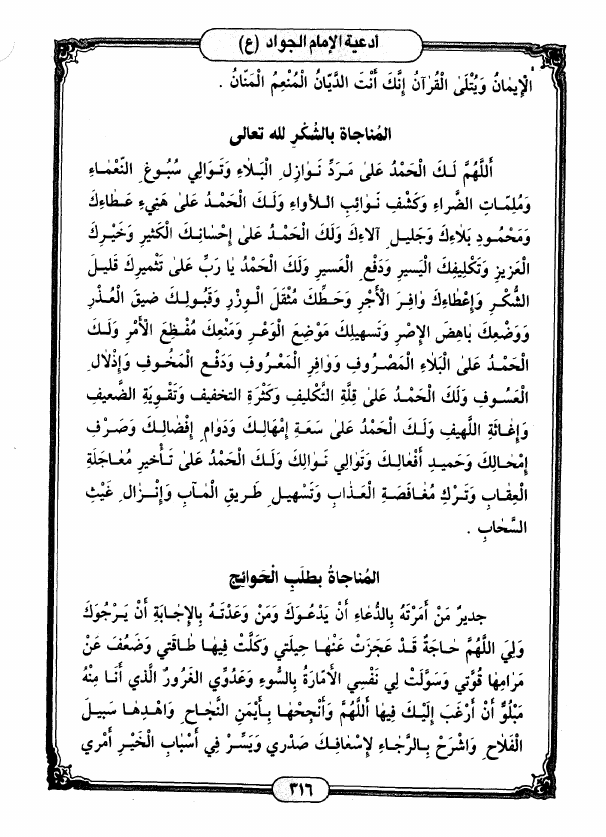 أدعية الإمام الجواد (ع)
الْإِيمَانُ وَيُتْلَى الْقُرْآنُ إِنَّكَ أَنْتَ الدَّيَّانُ الْمُنْعِمُ الْمَنَّانُ .
المُناجاة بالشُكْرِ لله تعالى
أَللَّهُمَّ لَكَ الْحَمْدُ عَلىٰ مَرَدِّ نَوازِلِ الْبَلاءِ وَتَوالِي سُبُوغِ النَّعْماءِ
وَمُلِمّاتِ الضَّراءِ وَكَشْفِ نَوائِبِ اللَّأواءِ وَلَكَ الْحَمْدُ عَلىٰ هَنِيءِ عَطاءِكَ
وَمَحْمُودِ بَلاءِكَ وَجَليلِ آلاءِكَ وَلَكَ الْحَمْدُ عَلىٰ إِحْسانِكَ الْكَثيرِ وَخَيْرِكَ
الْعَزيزِ وَتَكْليفِكَ الْيَسيرِ وَدَفْعِ الْعَسيرِ وَلَكَ الْحَمْدُ يا رَبِّ عَلىٰ تَثْميرِكَ قَليلَ
الشُّكْرِ وَإِعْطاءِكَ وافِرَ الْأَجْرِ وَحَطِّكَ مُثْقَلَ الْوِزْرِ وَقَبُولِكَ ضيقَ الْعُذْرِ
وَوَضْعِكَ باهِضَ الْإِصْرِ وَتَسْهيلِكَ مَوْضِعَ الْوَعْرِ وَمَنْعِكَ مُفْظِعَ الْأَمْرِ وَلَكَ
الْحَمْدُ عَلىٰ الْبَلاءِ الْمَصْرُوفِ وَوافِرِ الْمَعْرُوفِ وَدَفْعِ الْمَخُوفِ وَإِذْلالِ
الْعَسُوفِ وَلَكَ الْحَمْدُ عَلىٰ قِلَّةِ التَّكْليفِ وَكَثْرَةِ التخفيف وَتَقْوِيَةِ الضَّعيفِ
وَإِغاثَةِ اللَّهيفِ وَلَكَ الْحَمْدُ عَلىٰ سَعَةِ إِمْهالِكَ وَدَوامِ إِفْضالِكَ وَصَرْفِ
إِمْحالِكَ وَحَميدِ أَفْعالِكَ وَتَوالِي نَوالِكَ وَلَكَ الْحَمْدُ عَلىٰ تَأْخيرِ مُعاجَلَةِ
الْعِقابِ وَتَرْكِ مُغافَصَةِ الْعَذابِ وَتَسْهيلِ طَريقِ الْمَآبِ وَإِنْزالِ غَيْثِ
السَّحابِ .
المُناجاةُ بطَلَبِ الْحَوائِجِ
جديرٌ مَنْ أَمَرْتَهُ بِالدُّعاءِ أَنْ يَدْعُوَكَ وَمَنْ وَعَدْتَهُ بِالْإِجابَةِ أَنْ يَرْجُوكَ
وَلِيَ اللَّهُمَّ حاجَةٌ قَدْ عَجَزَتْ عَنْها حيلَتي وَكَلَّتْ فيها طاقَتي وَضَعُفَ عَنْ
مَرامِها قُوَّتي وَسَوَّلَتْ لِي نَفْسِي الْأَمّارَةُ بِالسُّوءِ وَعَدُوِّي الْغَرُورُ الَّذي أَنا مِنْهُ
مَبْلُوٌّ أَنْ أَرْغَبَ إِلَيْكَ فِيها أَللَّهُمَّ وَأَنْجِحْها بِأَيْمَنِ النَّجاحِ وَاهْدِها سَبيلَ
الْفَلاحِ وَاشْرَحْ بِالرَّجاءِ لِإِسْعافِكَ صَدْري وَيَسِّرْ فِي أَسْبابِ الْخَيْرِ أَمْري
٣١٦